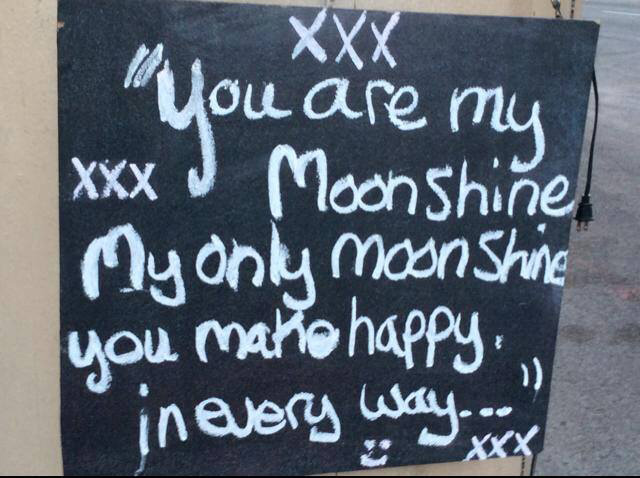 xxx
"You are my
xxx Moonshine
My only moonshine
you make happy.
in every way..."
xxx